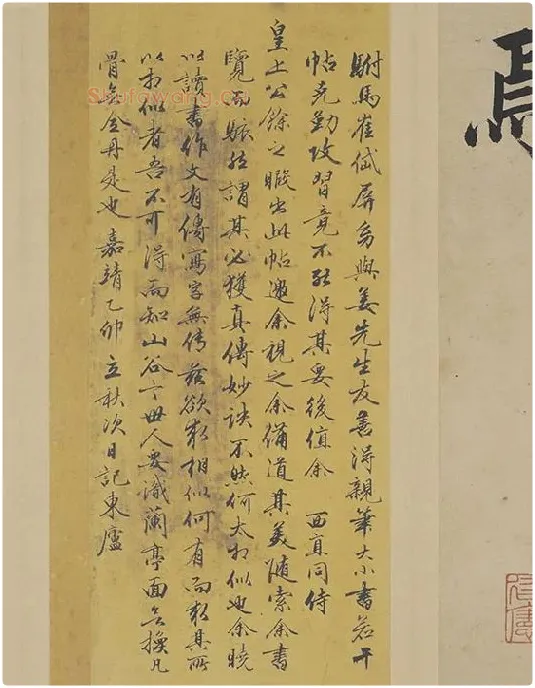 駙馬崔岱屏與姜先生友善得親筆大小書若干
帖克勤攻習竟不能得其要後值余 西直同侍
皇上公餘之暇出此帖邀余視之余備道其美隨索余書
覽而駭然謂其必獲真傳妙訣不然何太相似也余曉
以讀書作文有傳寫字無传茲欲求相似何有而求其所
以相似者吾不可得而知山谷云世人要識蘭亭面無換凡
骨無金丹是也 嘉靖乙卯立秋次日記東廬
Shufawang.cn